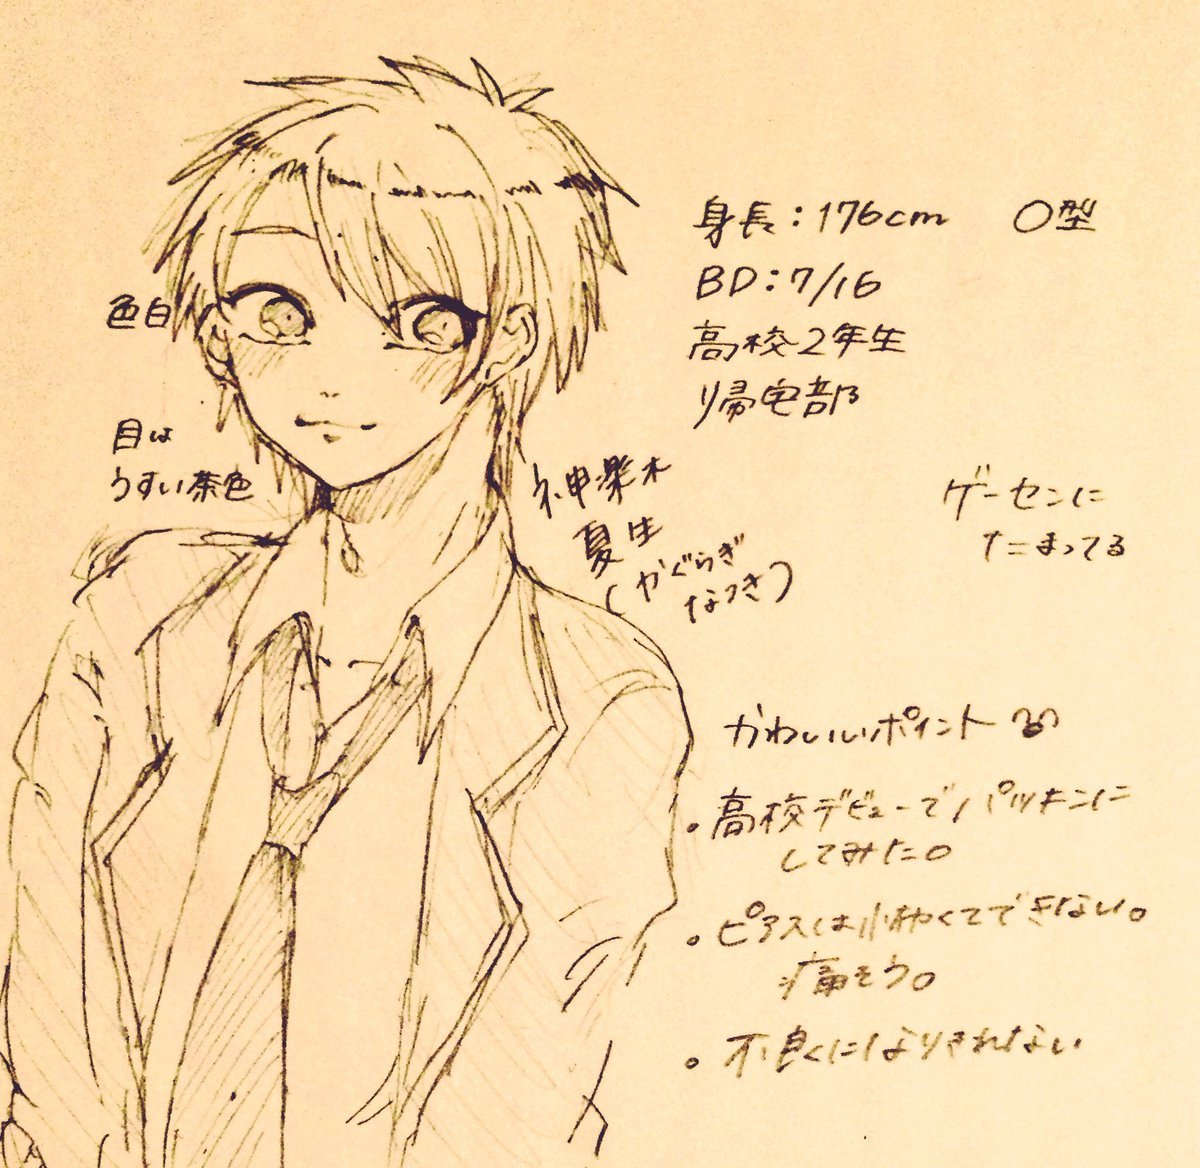 身長：176cm　O型
BD：7/16
高校2年生
帰宅部
色白
目は
うすい茶色
神楽木
夏生
(かぐらぎ
なつき)
ゲーセンに
たまってる
かわいいポイント
・高校デビューでパツキンに
してみた。
・ピアスは怖くてできない。
痛そう。
・不良になりきれない